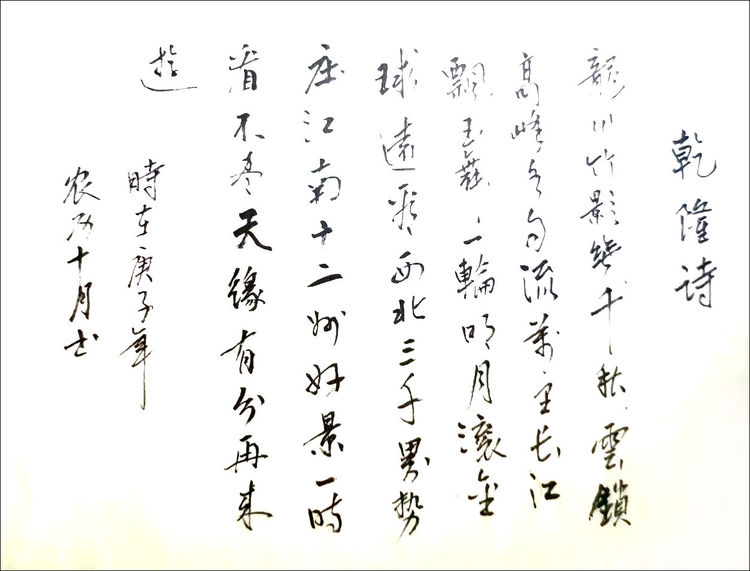 乾隆诗
龍川竹影幾千秋雲鎖
高峰水自流萬里长江
飄玉帶一輪明月滾金
球遠看西北三千界势
压江南十二州好景一時
看不尽天缘有分再来
遊
時在庚子年
农历十月书